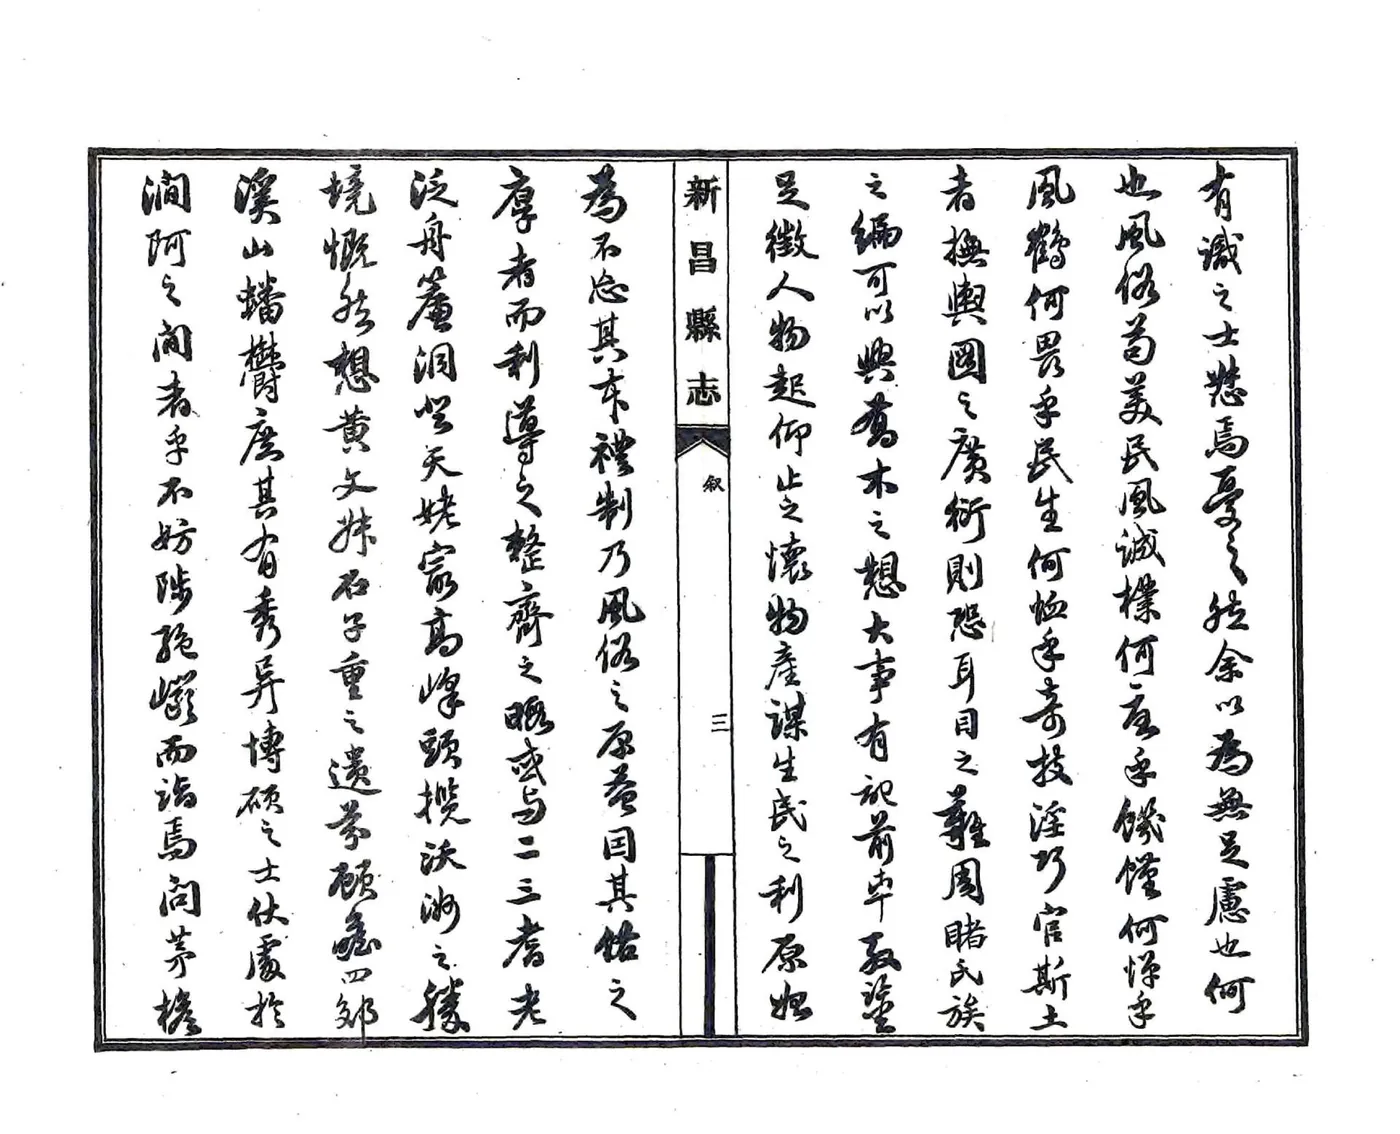 有識之士愁焉憂之然余以為無足慮也何
也風俗苟美民風誠樸何窳乎饑饉何憚乎
風鶴何畏乎民生何恤乎奇技淫巧官斯土
者撫輿圖之廣衍則恐耳目之難周睹氏族
之編可以興喬木之想大事有記前車教鑒
足徵人物起仰止之懷物產謀生民之利原始
新昌縣志
叙
三
為不忘其本禮制乃風俗之原若因其俗之
厚者而利導之整齊之暇或與二三耆老
泛舟簾洞登天姥最高峰頭攬沃洲之勝
境慨然想黃文姝石子重之遺芬顧瞻四郊
溪山蟠鬱庶其有秀異博碩之士伏處於
澗阿之間者乎不妨陟絕巘而詣焉問茅檐